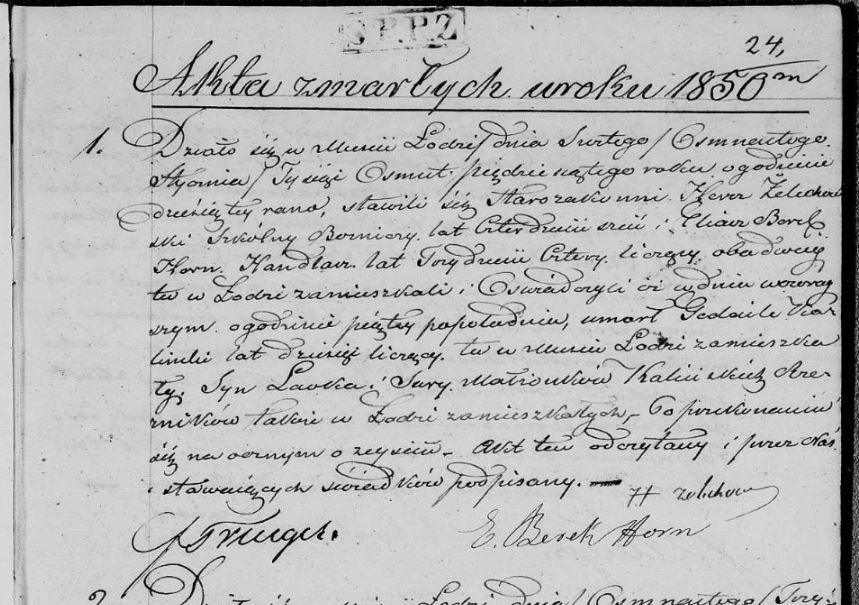 S.P.P.Z
24,
Akta zmarłych w roku 1850m
1. Działo się w Mieście Łodzi dnia Szóstego / Osmnastego
Stycznia / Tysiąc Osmset pięćdziesiątego roku, o godzinie
dziesiątey rano, stawili się Starozakonni Herer Zelichow
ski Szkólny Bożniczy lat Czterdzieści sześć i Eliasz Berek
Horn Handlarz lat Trzydzieści Cztery liczący, obadwaj
tu w Łodzi zamieszkali i Oświadczyli iż w dniu wczoraj
szym o godzinie piątey popołudniu, umarł Gedaile Ka
liński lat dziesięć liczący, tu w Mieście Łodzi zamieszka
ły, Syn Lavka i Sury Małżonków Kalińskich
ników także w Łodzi zamieszkałych, – Po przekonaniu
się naocznym o zeyściu – Akt ten odczytany i przez Nas
i stawających świadków podpisany. —
H zelichow
E. Berek Horn
2. Działo się w Łodzi dnia / Osmnastego / Trzy-